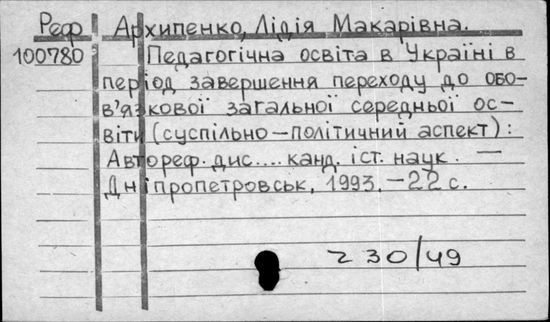 Реф Архипенко, Лідія Макарівна.
100780 Педагогічна освіта в Україні в
період завершення переходу до обо-
в'язкової загальної середньої ос-
віти (суспільно-політичний аспект):
Автореф. дис.... канд. іст. наук. —
Дніпропетровськ, 1993. - 22 с.
230/49